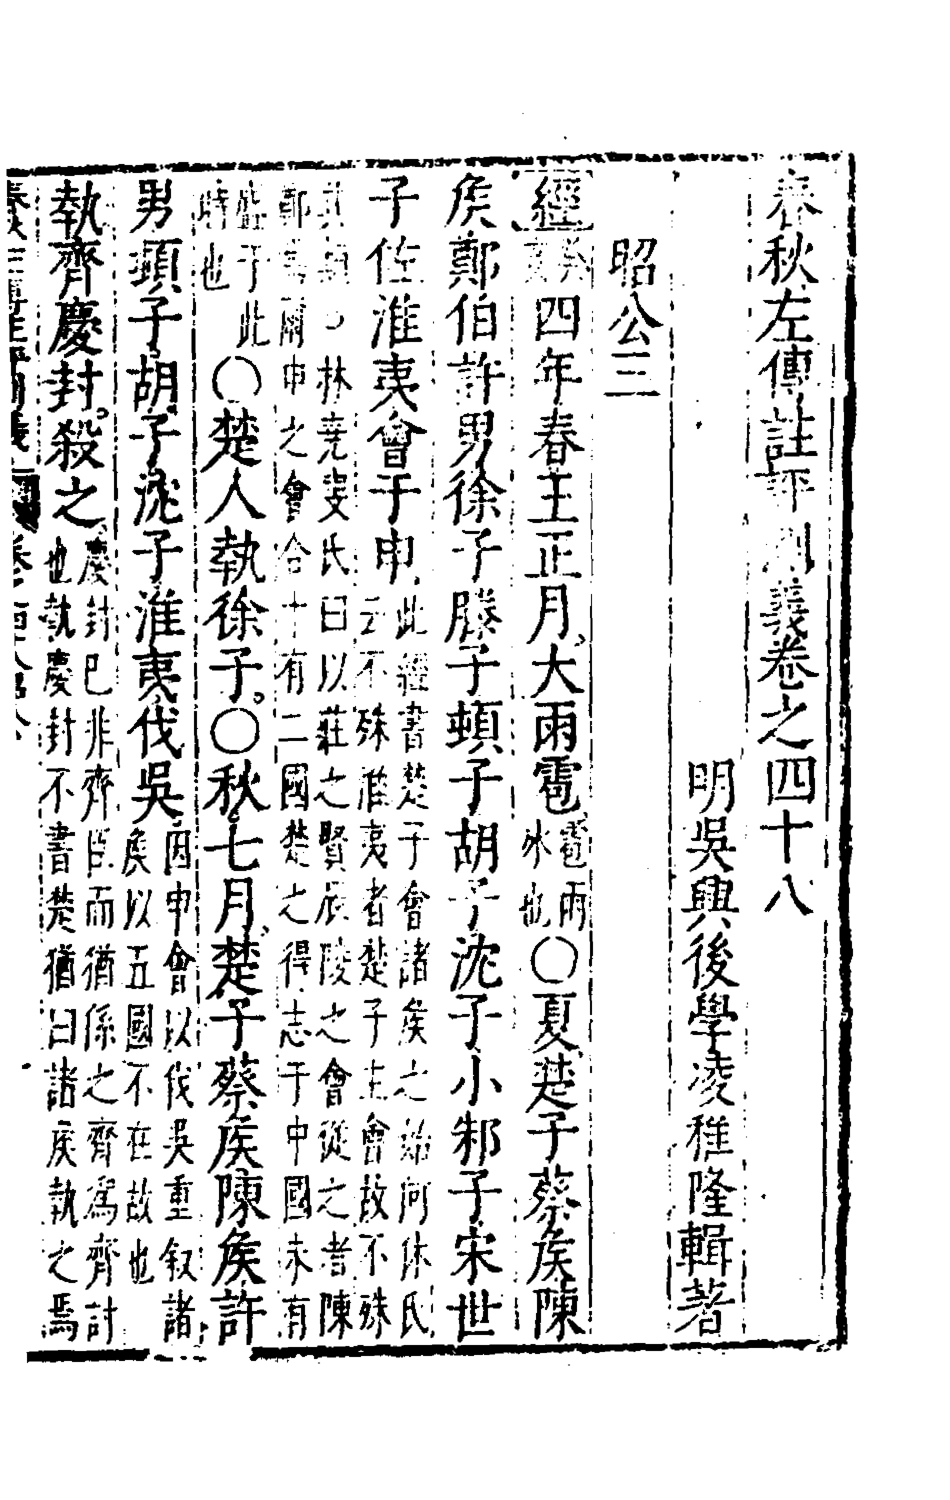 春秋左傳註評測義卷之四十八
明吳興後學凌稚隆輯著
昭公三
經癸亥四年春王正月大雨雹雹雨冰也○夏楚子蔡侯陳
侯鄭伯許男徐子滕子頓子胡子沈子小邾子宋世
子佐淮夷會于申此經書楚子會諸侯之始何休氏
云不殊淮夷者楚子主會故不殊
其類○林堯叟氏曰以莊之賢辰陵之會從之者陳
鄭焉爾申之會合十有二國楚之得志于中國未有
盛于此
時也○楚人執徐子○秋七月楚子蔡侯陳侯許
男頓子胡子沈子淮夷伐吳因申會以伐吳重叙諸
侯以五國不在故也
執齊慶封殺之慶封已非齊臣而猶係之齊為齊討
也執慶封不書楚猶曰諸侯執之焉
卷四十八昭公